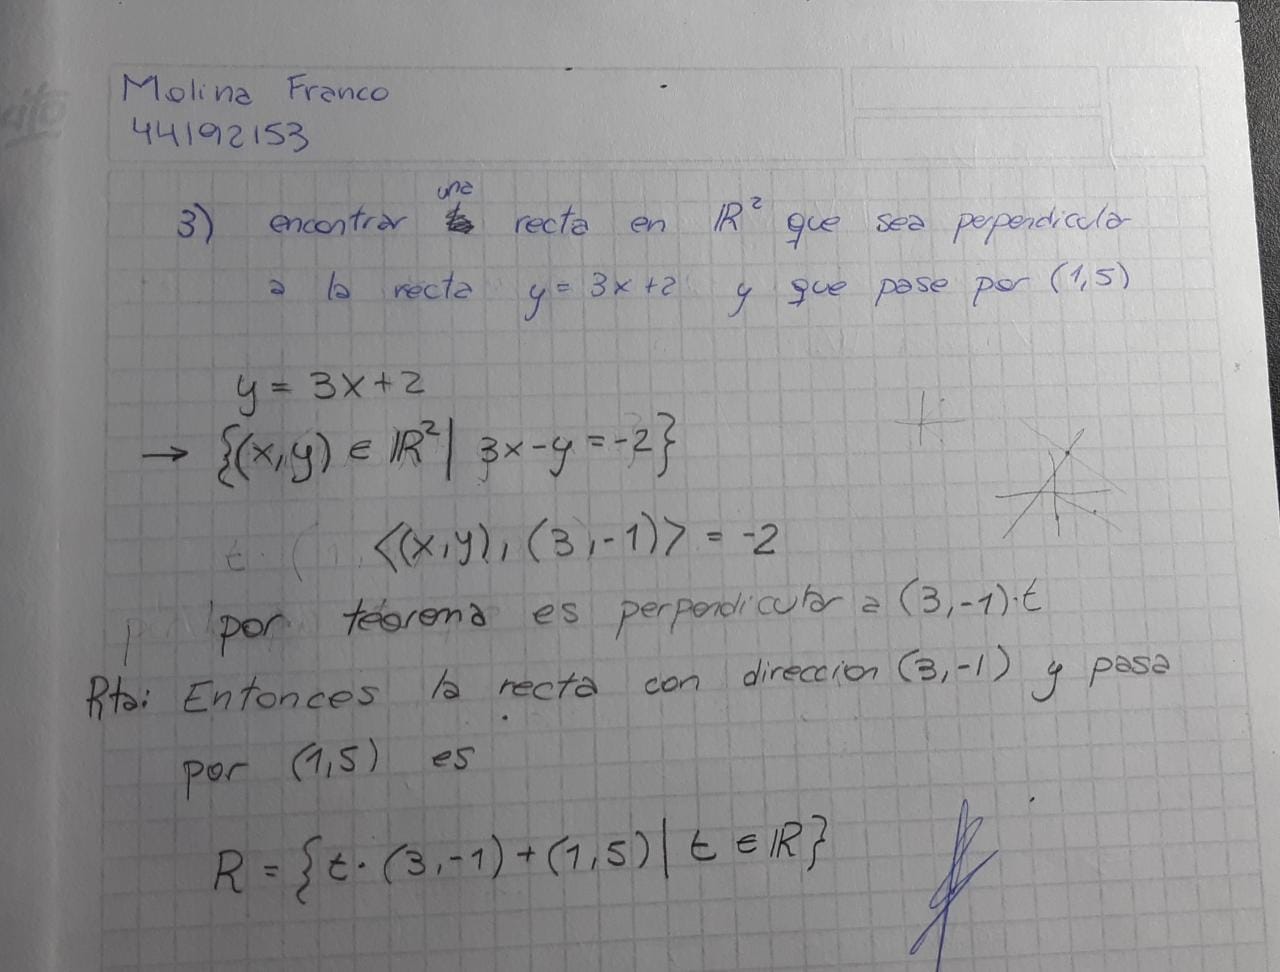 Molina Franco
44192153
3) encontrar una recta en IR² que sea perpendicular
a la recta y = 3x+2 y que pase por (1,5)
y = 3x+2
→ {(x,y) ∈ IR² | 3x-y = -2}
<(x,y), (3,-1)> = -2
por teorema es perpendicular a (3,-1)·t
Rta: Entonces la recta con direccion (3,-1) y pasa
por (1,5) es
R = {t·(3,-1)+(1,5) | t ∈ IR}